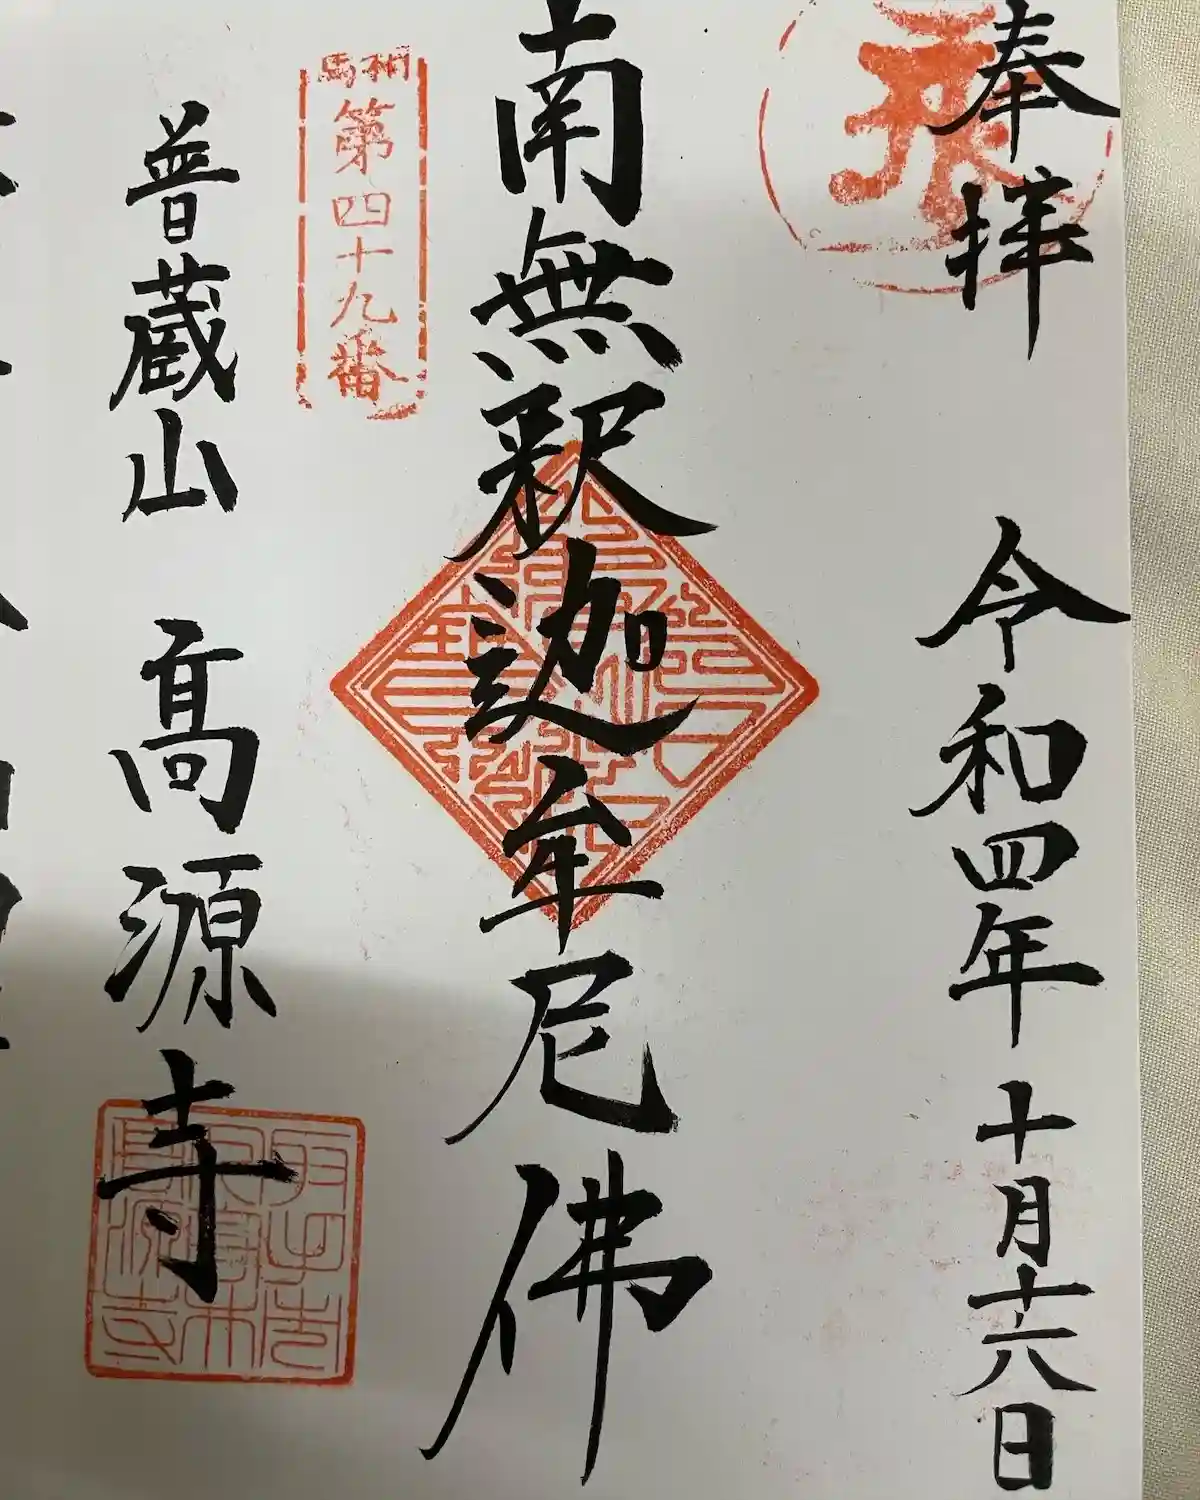 奉拝 令和四年十月十六日
南無釈迦牟尼佛
相馬
第四十九番
普蔵山 高源寺